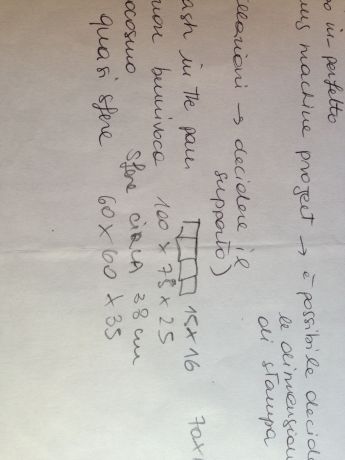 in-perfetto
machine project → è possibile decid
le dimension
di stampa
→ decidere il
supporto)
ash in the pan 15x16
non biunivoca 100 x 75 x 25
70x
ocosmo sfere circa 38 cm
quasi sfere 60x60 x35